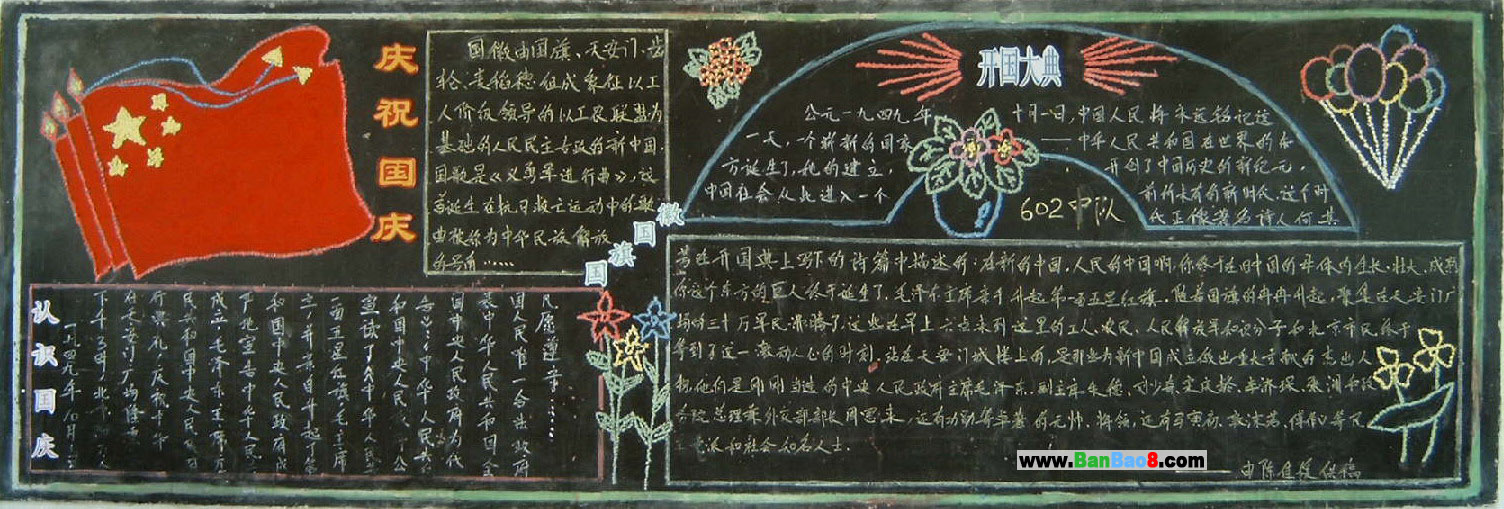 庆祝国庆
国徽由国旗、天安门、齿
轮、麦稻穗组成象征以工
人阶级领导的以工农联盟为
基础的人民民主专政的新中国.
国歌是《义勇军进行曲》,这
首诞生在抗日救亡运动中的歌
曲被称为中华民族解放
的号角……
国旗国徽
认识国庆
一九四九年10月一
下午3时,北京
在天安门广场隆重
行典礼,庆祝中华
民共和国中央人民政府
成立,毛泽东主席
严地宣告中华人民
和国中央人民政府成
立,并亲自升起
一面五星红旗,毛主席
宣读了《中华人民共
和国中央人民政府公
告》:中华人民共
国中央人民政府为代
表中华人民共和国全
国人民唯一合法政府
凡愿遵守……
开国大典
公元一九四九年十月一日,中国人民将永远铭记这
一天,一个崭新的国家——中华人民共和国在世界的东
方诞生了,她的建立,开创了中国历史的新纪元,
中国社会从此进入一个前所未有的新时代.这个时
代正像著名诗人何其
602中队
芳在开国典上写下的诗篇中描述的:在新的中国,人民的中国啊,你终于在旧中国的母体内生长,壮大,成熟
你这个东方的巨人终于诞生了.毛泽东主席亲手升起第一面五星红旗.随着国旗的冉冉升起,聚集在天安门广
场的三十万军民沸腾了,这些在早上六点来到这里的工人、农民、人民解放军和知识分子和北京市民终于
等到了这一激动人心的时刻.站在天安门城楼上的,是那些为新中国成立做出重大贡献的杰出人
物,他们是刚刚当选的中央人民政府主席毛泽东.副主席朱德、刘少奇宋庆龄、李济琛、张澜和政
务院总理兼外交部部长周恩来,还有功勋等卓著的元帅、将领,还有马寅初、郭沫若、
党派和社会知名人士.
www.BanBao8.com